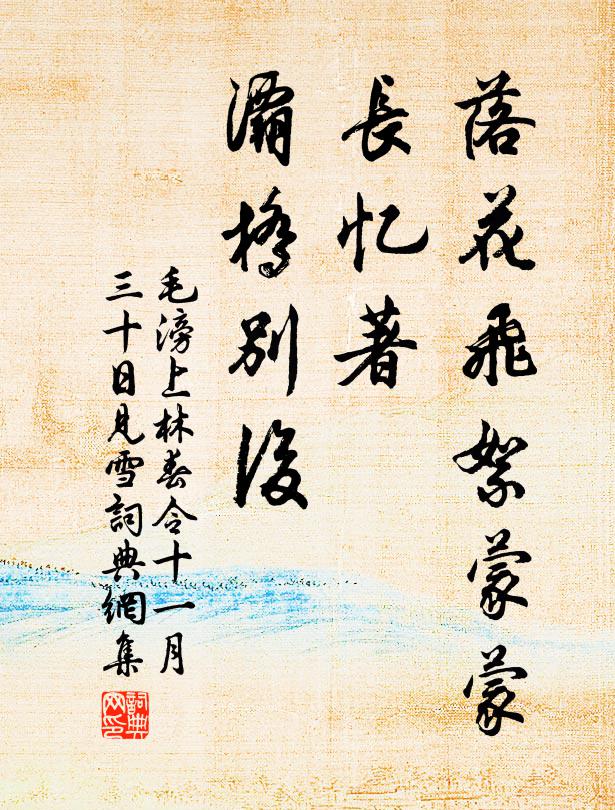 落花飛絮蒙蒙
長忆著
灞橋別後
毛滂上林春令十一月
三十日見雪詞典網集
詞典网印